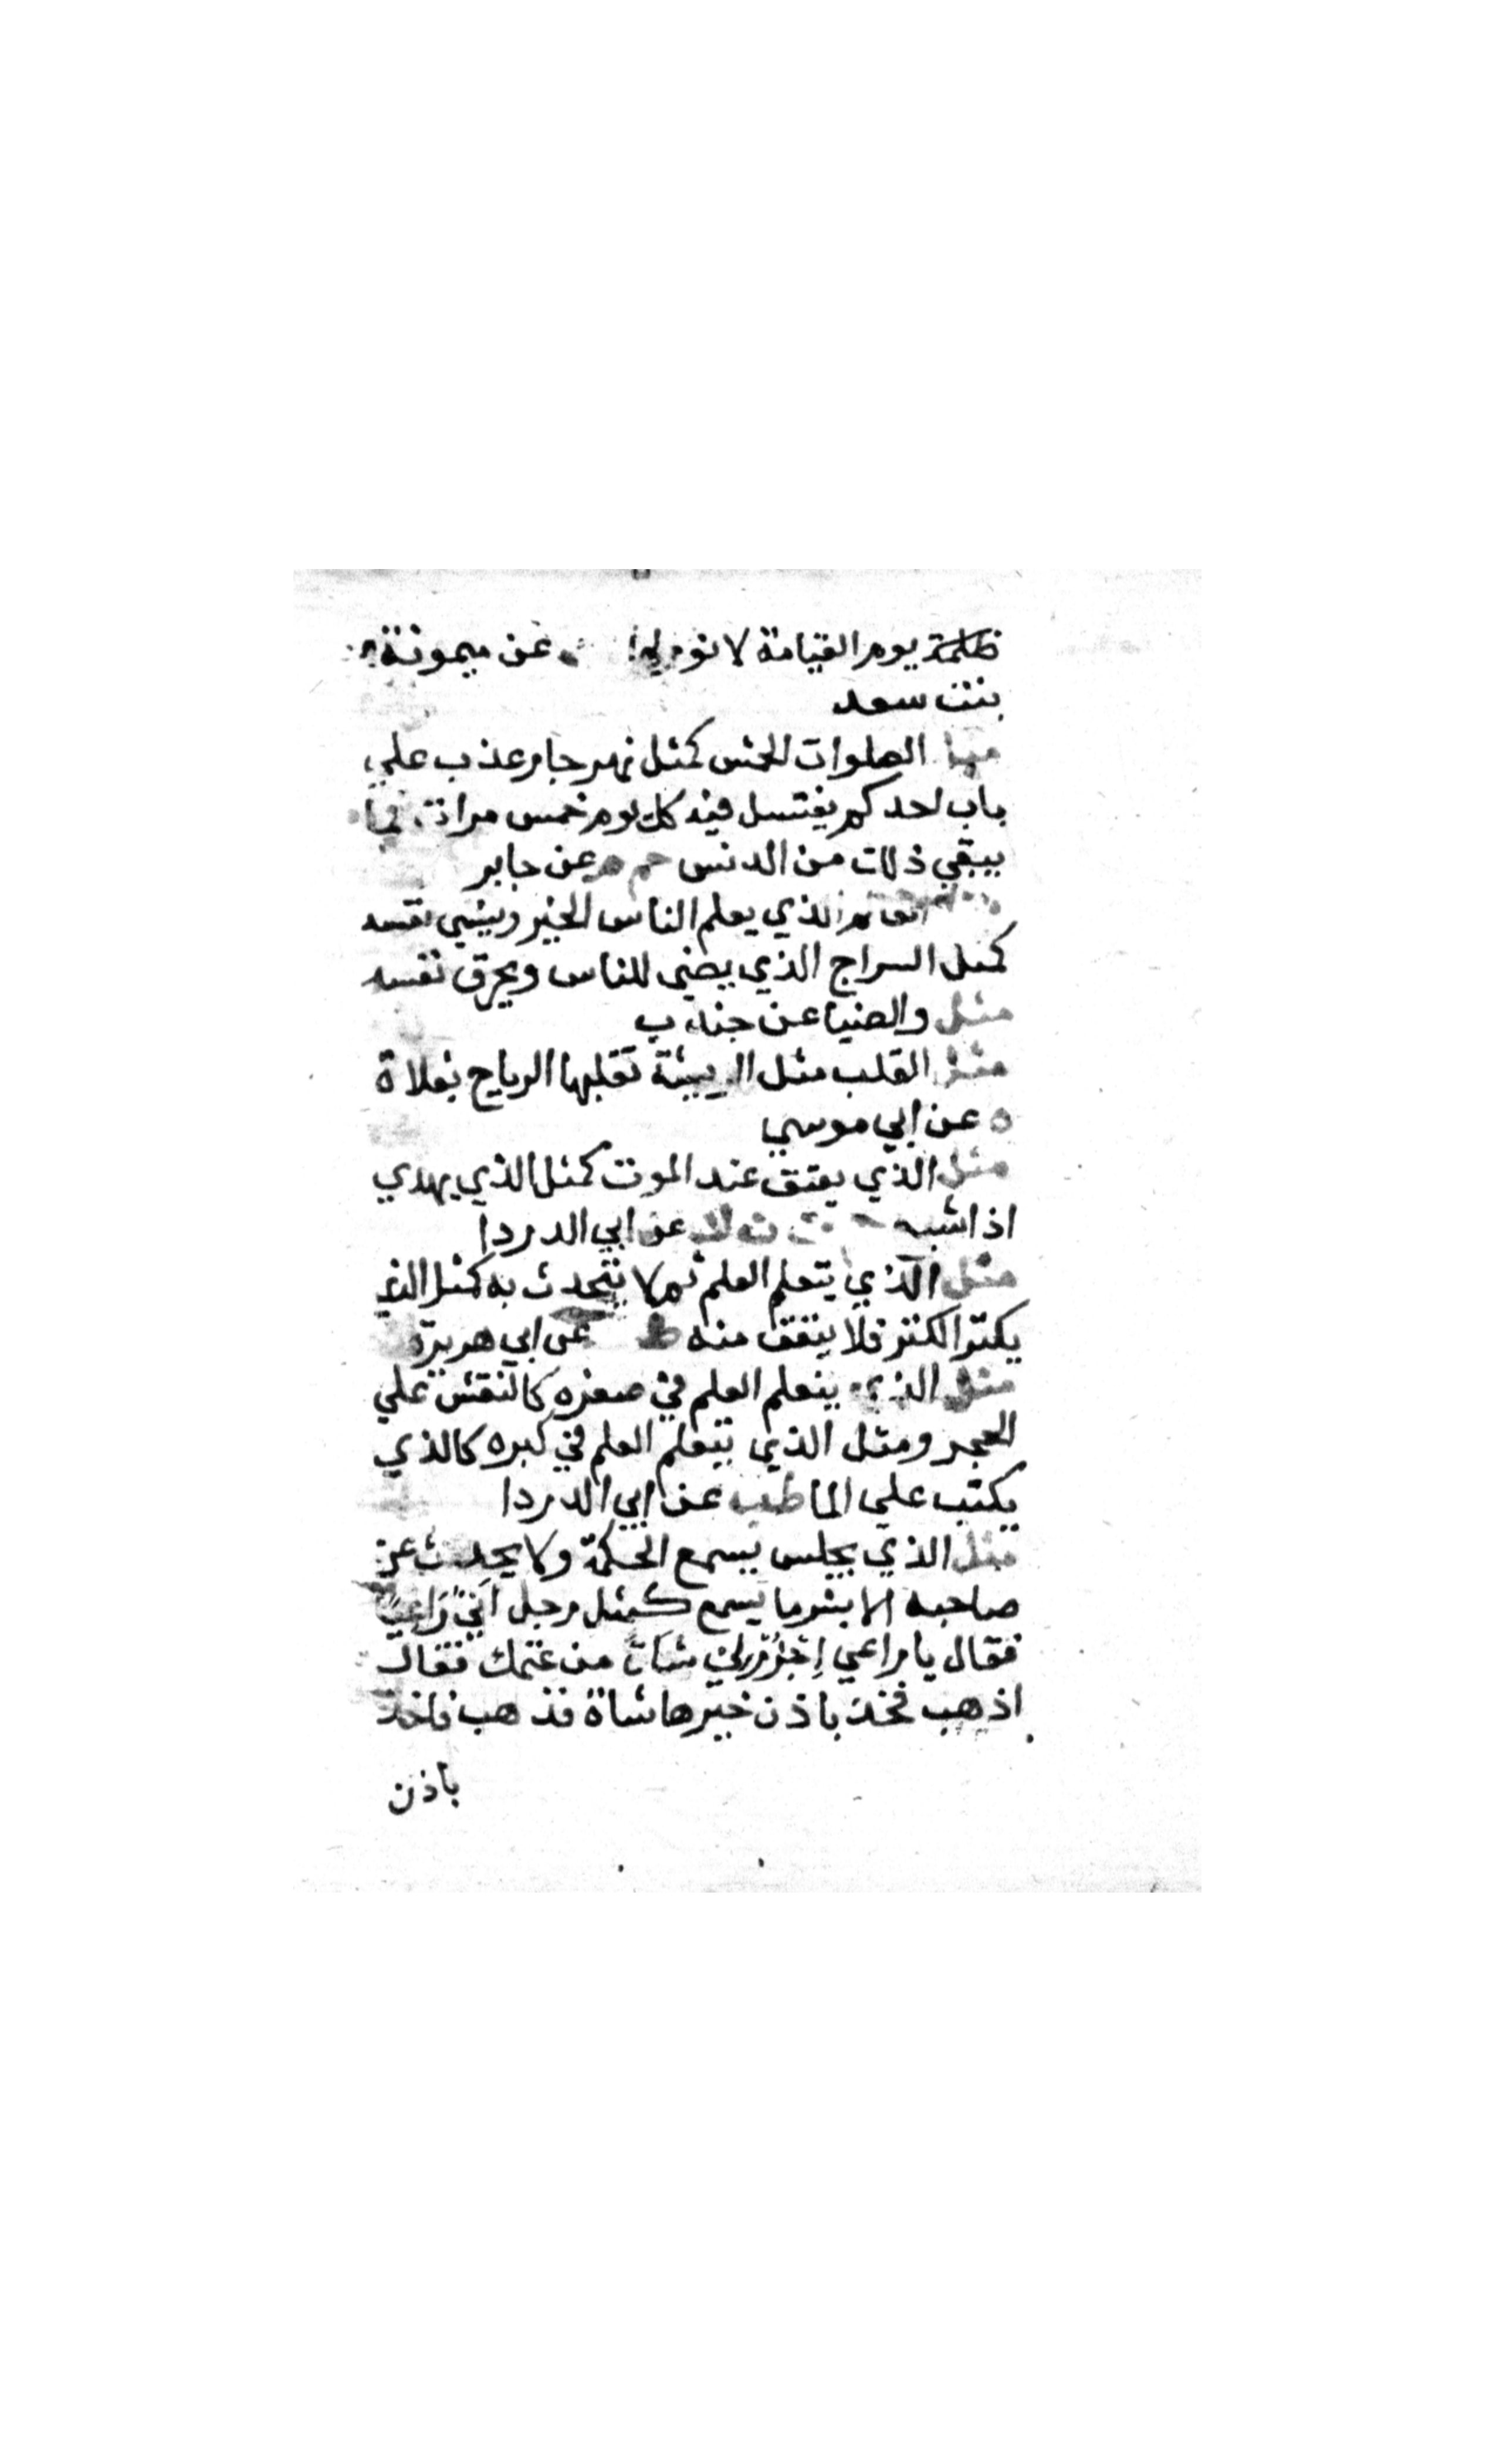 ظلمة يوم القيامة لا نور لها عن ميمونة
بنت سعد
الصلوات الخمس كمثل نهر جار عذب علي
باب احدكم يغتسل فيه كل يوم خمس مرات فما
يبقي ذلك من الدنس حم م عن جابر
العالم الذي يعلم الناس الخير وينسي نفسه
كمثل السراج الذي يضي للناس ويحرق نفسه
والضيا عن جندب
مثل القلب مثل الريشة تقلبها الرياح بفلاة
ه عن ابي موسي
مثل الذي يعتق عند الموت كمثل الذي يهدي
اذا شبع حم ت ن ك عن ابي الدردا
مثل الذي يتعلم العلم ثم لا يتحدث به كمثل الذي
يكنز الكنز فلا ينفق منه ط عن ابي هريرة
مثل الذي يتعلم العلم في صغره كالنقش علي
الحجر ومثل الذي يتعلم العلم في كبره كالذي
يكتب علي الما طب عن ابي الدردا
مثل الذي يجلس يسمع الحكمة ولا يحدث عن
صاحبه الا بشر ما يسمع كمثل رجل اتي راعيا
فقال يا راعي اجزرني شاة من غنمك فقال
اذهب فخذ باذن خيرها شاة فذهب فاخذ
باذن